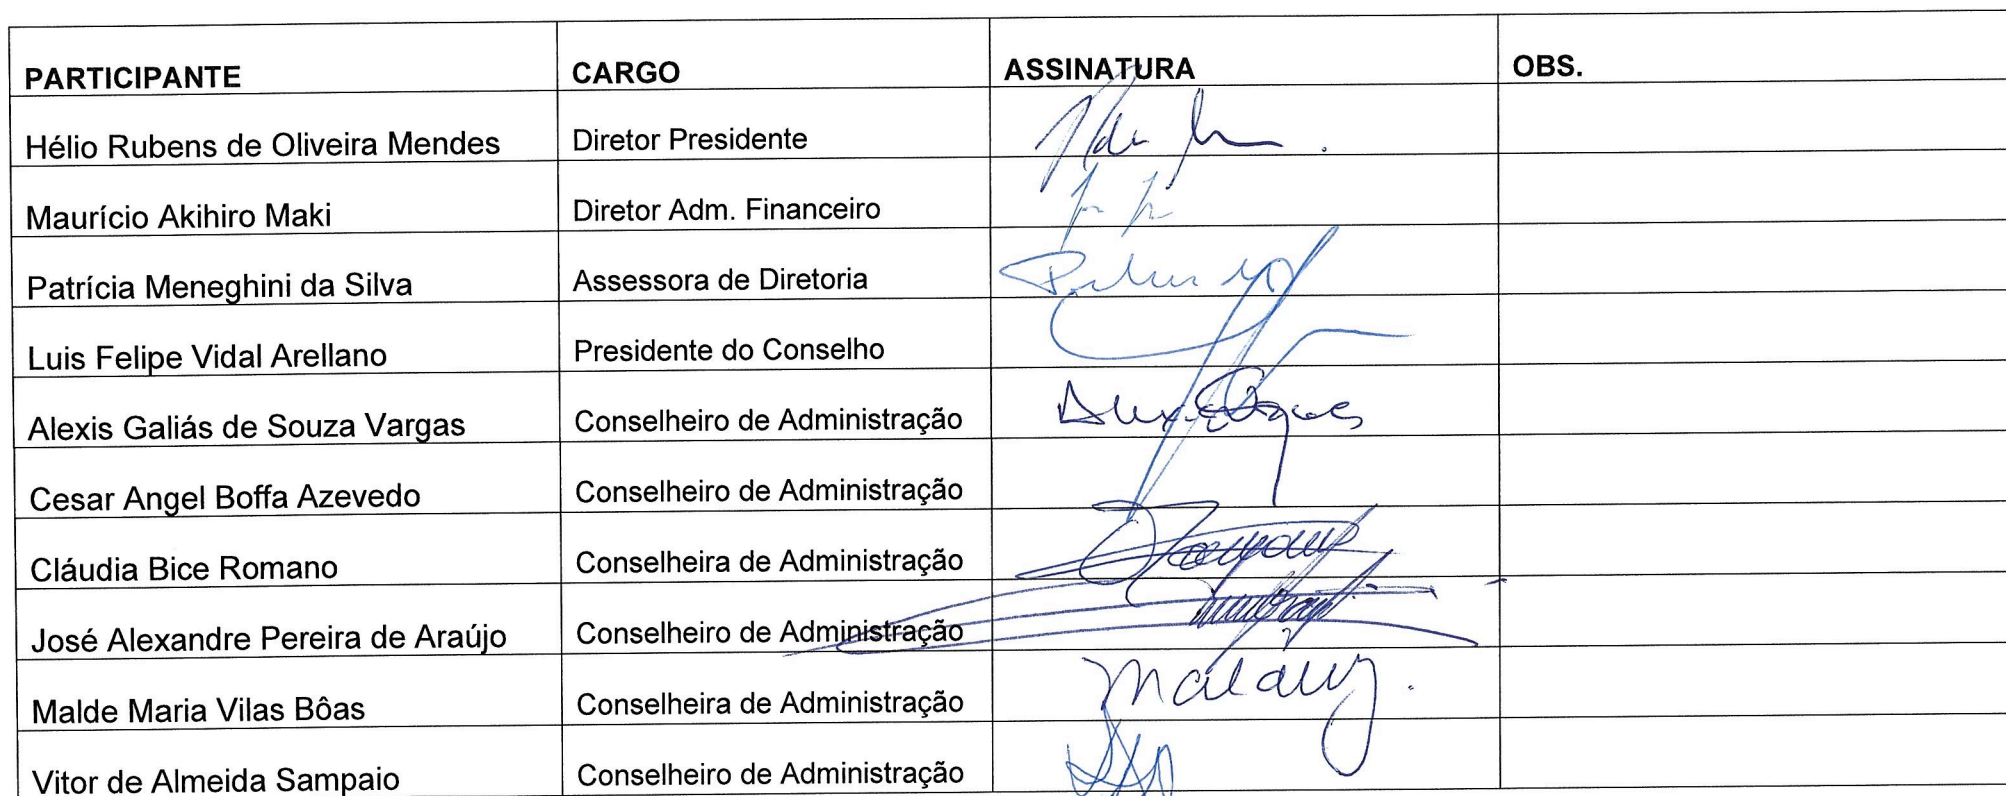 PARTICIPANTE CARGO ASSINATURA OBS.
Hélio Rubens de Oliveira Mendes Diretor Presidente
Maurício Akihiro Maki Diretor Adm. Financeiro
Patrícia Meneghini da Silva Assessora de Diretoria
Luis Felipe Vidal Arellano Presidente do Conselho
Alexis Galiás de Souza Vargas Conselheiro de Administração
Cesar Angel Boffa Azevedo Conselheiro de Administração
Cláudia Bice Romano Conselheira de Administração
José Alexandre Pereira de Araújo Conselheiro de Administração
Malde Maria Vilas Bôas Conselheira de Administração
Vitor de Almeida Sampaio Conselheiro de Administração